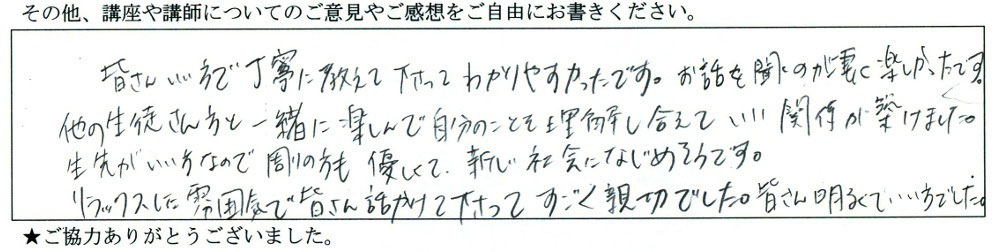 その他、講座や講師についてのご意見やご感想をご自由にお書きください。
皆さんいい方で丁寧に教えて下さってわかりやすかったです。お話を聞くのが凄く楽しかったです。
他の生徒さん方と一緒に楽しんで自分のことを理解し合えていい関係が築けました。
生先がいい方なので周りの方も優しくて、新しい社会になじめそうです。
リラックスした雰囲気で皆さん話かけて下さってすごく親切でした。皆さん明るくていい方でした。
★ご協力ありがとうございました。